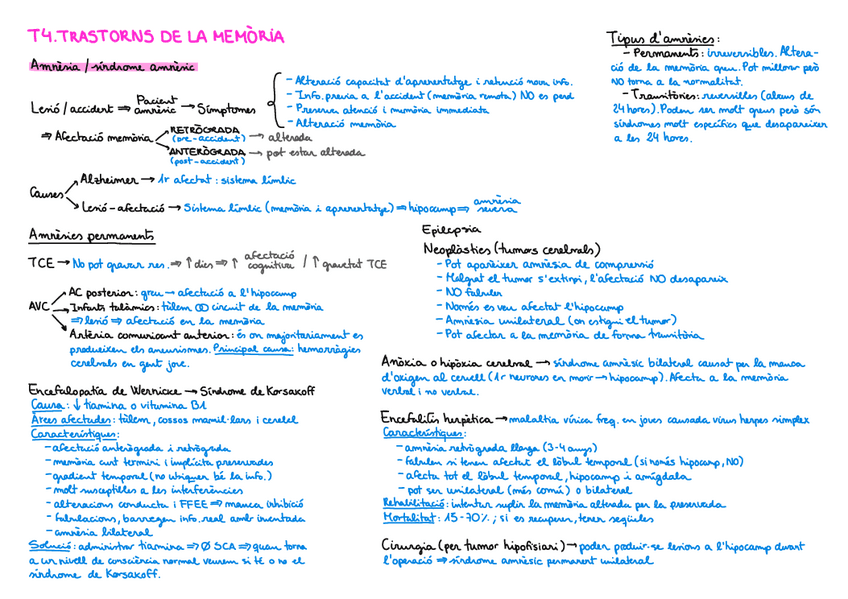 T4. TRASTORNS DE LA MEMÒRIA
Amnèsia / síndrome amnèsic
Lesió / accident ⇒ Pacient amnèsic → Símptomes
- Alteració capacitat d'aprenentatge i retenció nova info.
- Info. previa a l'accident (memòria remota) NO es perd
- Preserva atenció i memòria immediata
- Alteració memòria
⇒ Afectació memòria
RETRÒGRADA (pre-accident) → alterada
ANTERÒGRADA (post-accident) → pot estar alterada
Causes
Alzheimer → 1r afectat: sistema límbic
Lesió-afectació → Sistema límbic (memòria i aprenentatge) ⇒ hipocamp ⇒ amnèsia severa
Tipus d'amnèsies:
- Permanents: irreversibles. Altera-
ció de la memòria greu. Pot millorar però
NO torna a la normalitat.
- Transitòries: reversibles (abans de
24 hores). Poden ser molt greus però són
síndromes molt específics que desapareixen
a les 24 hores.
Amnèsies permanents
TCE → No pot gravar res. ⇒ ↑ dies ⇒ ↑ afectació cognitiva / ↑ gravetat TCE
AVC
AC posterior: greu → afectació a l'hipocamp
Infarts talàmics: tàlem circuit de la memòria
⇒ lesió ⇒ afectació en la memòria
Artèria comunicant anterior: és on majoritariament es
produeixen els aneurismes. Principal causa: hemorràgies
cerebrals en gent jove.
Encefalopatia de Wernicke → Síndrome de Korsakoff
Causa: ↓ tiamina o vitamina B1
Àrees afectades: tàlem, cossos mamil·lars i cerebel
Característiques:
- afectació anterògrada i retrògrada
- memòria curt termini i implícita preservades
- gradient temporal (no ubiquen bé la info.)
- molt susceptibles a les interferències
- alteracions conducta i FFEE ⇒ manca inhibició
- fabulacions, barregen info. real amb inventada
- amnèsia bilateral
Solució: administrar tiamina ⇒ Ø SCA ⇒ quan torna
a un nivell de consciència normal veurem si té o no el
síndrome de Korsakoff.
Epilepsia
Neoplàsties (tumors cerebrals)
- Pot aparèixer amnèsia de compressió
- Malgrat el tumor s'extirpi, l'afectació NO desapareix
- NO fabulen
- Només es veu afectat l'hipocamp
- Amnèsia unilateral (on estigui el tumor)
- Pot afectar a la memòria de forma transitòria
Anòxia o hipòxia cerebral → síndrome amnèsic bilateral causat per la manca
d'oxigen al cervell (1r neurones en morir → hipocamp). Afecta a la memòria
verbal i no verbal.
Encefalitis herpètica → malaltia vírica freq. en joves causada virus herpes simplex
Característiques:
- amnèsia retrògrada llarga (3-4 anys)
- fabulen si tenen afectat el lòbul temporal (si només hipocamp, NO)
- afecta tot el lòbul temporal, hipocamp i amígdala
- pot ser unilateral (més comú) o bilateral
Rehabilitació: intentar suplir la memòria alterada per la preservada
Mortalitat: 15-70%; si es recuperen, tenen seqüeles
Cirurgia (per tumor hipofisiari) → poden produir-se lesions a l'hipocamp durant
l'operació ⇒ síndrome amnèsic permanent unilateral